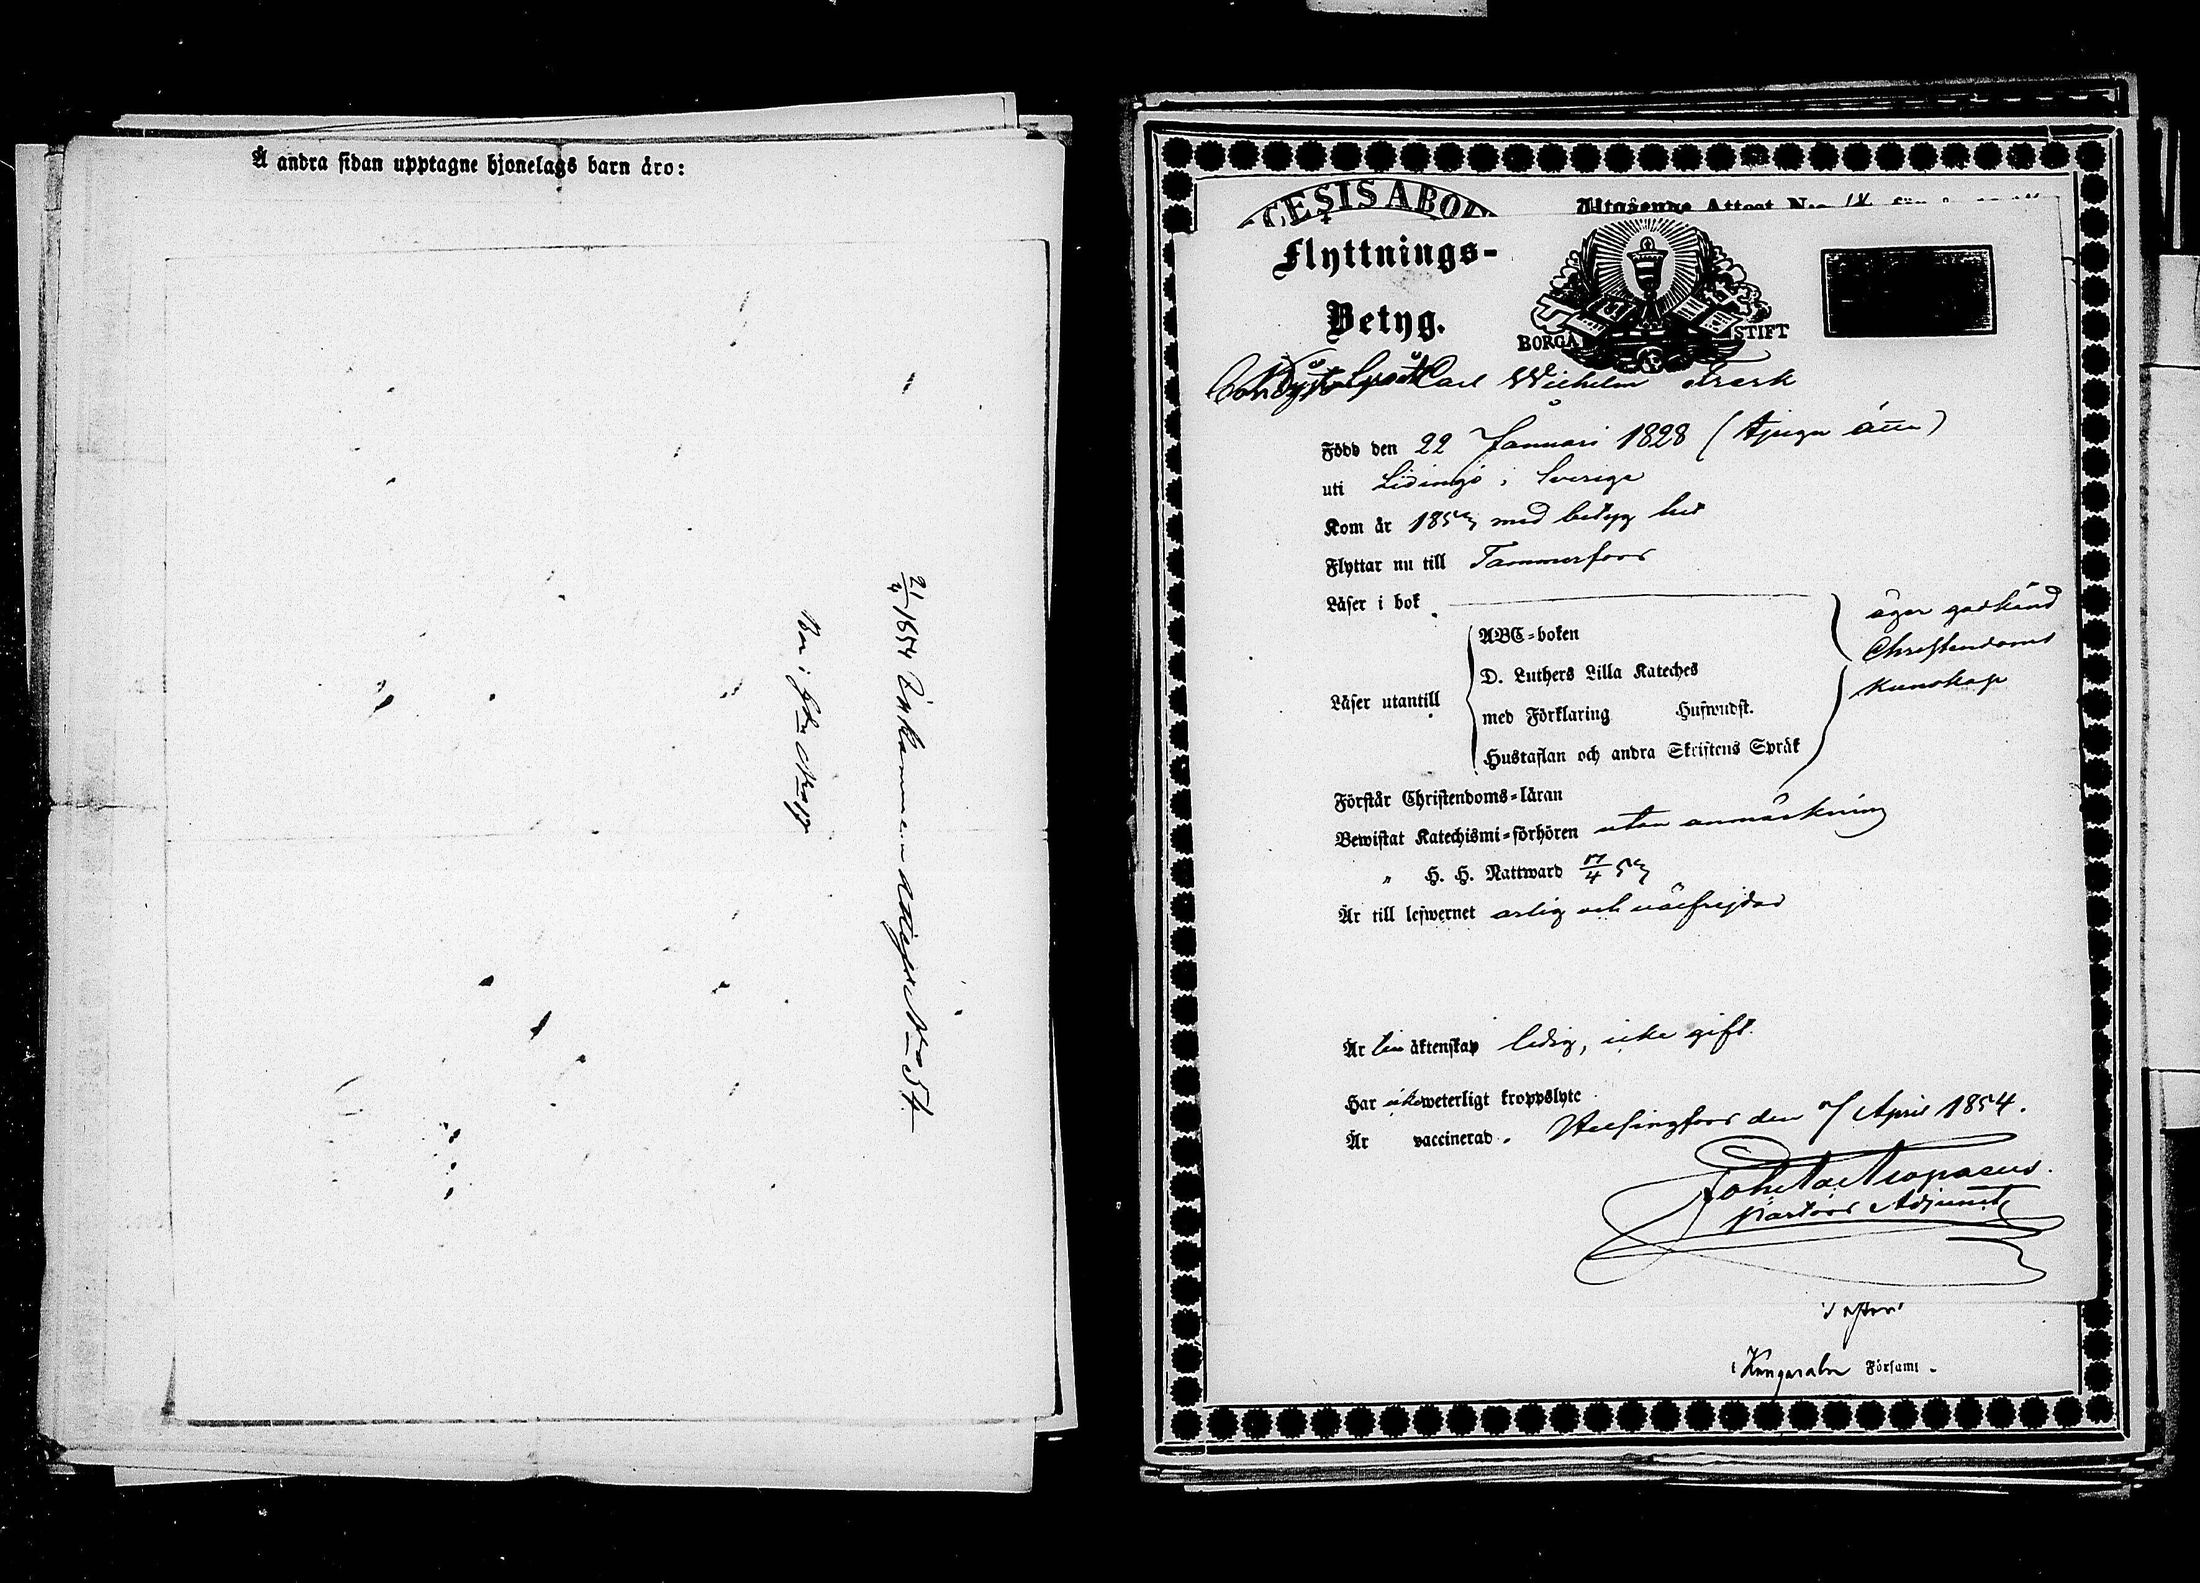 Å andra sidan upptagne hjonelags barn äro:
21/4 1854 Inkommen Attest No 54
CESIS ABO
Utgående Attest No
Flyttnings-
Betyg.
BORGÅ STIFT
Carl Wilhelm
Född den 22 Januari 1828 (tjugu åtta)
uti Lidingö i Sverige
Kom år 1853 med betyg hit
Flyttar nu till Tammerfors
Läser i bok
äger godkänd
Christendoms
kunskap
Läser utantill
ABC-boken
D. Luthers Lilla Kateches
med Förklaring Huswudst.
Hustaflan och andra Skriftens Språk
Förstår Christendoms-läran
Bewistat Katechismi-förhören utan anmärkning
" H. H. Nattward 17/4 53
Är till lefwernet ärlig och välfrejdad
Är till äktenskap ledig, icke gift.
Har icke weterligt kroppslyte
Är vaccinerad. Helsingfors den 7 April 1854.
Pastors Adjunct
i Kangasala Församl.